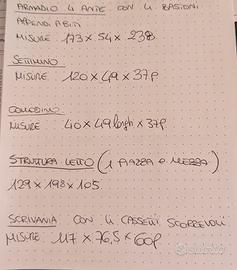 ARMADIO 4 ANTE CON 4 BASTONI
APPENDI ABITI
MISURE: 173 x 54 x 238
SETTIMINO
MISURE: 120 x 49 x 37p
COMODINO
MISURE: 40 x 49 largh x 37p
STRUTTURA LETTO (1 PIAZZA E MEZZA)
129 x 198 x 105
SCRIVANIA CON 4 CASSETTI SCORREVOLI
MISURE: 117 x 76,5 x 60p
subito